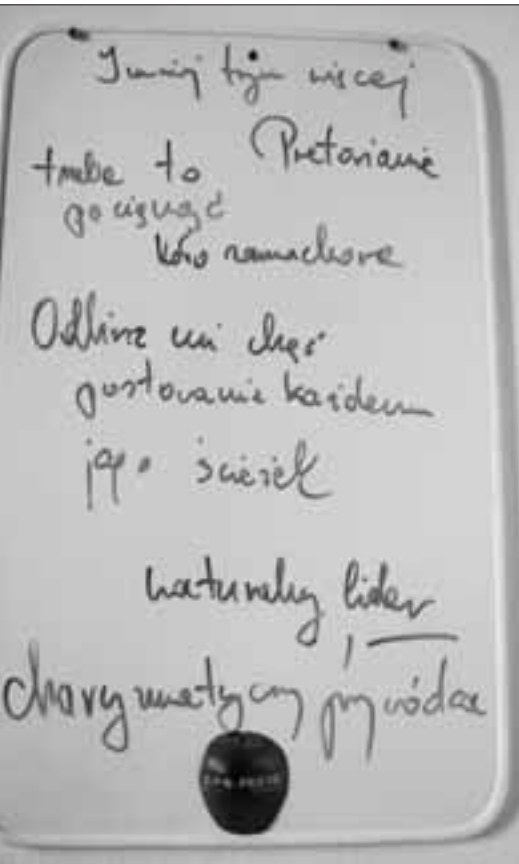 tym więcej
Pretorianie
trzeba to
pociągnąć
koło zamachowe
Odbierz mi chęć
prostowanie każdemu
jego ścieżek
naturalny lider
charyzmatyczny przywódca